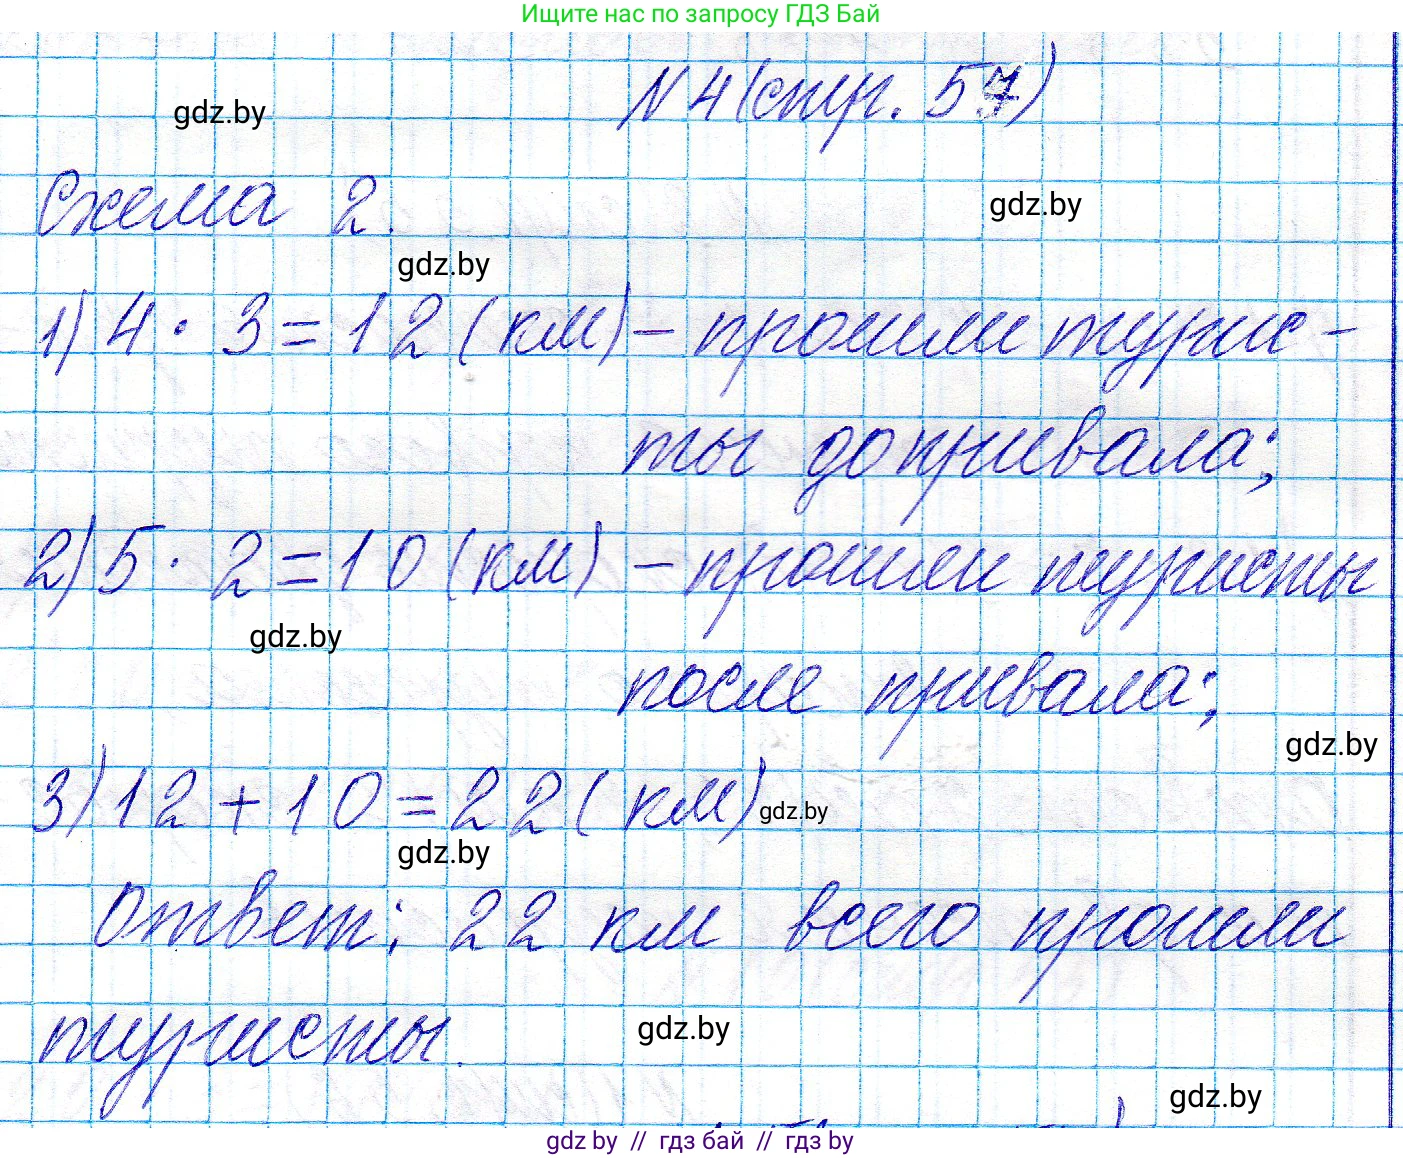 Ищите нас по запросу ГДЗ Бай
N 4 (стр. 57)
gdz.by
Схема 2.
gdz.by
gdz.by
1) 4 · 3 = 12 (км) – прошли турис-
ты до привала;
2) 5 · 2 = 10 (км) – прошли туристы
gdz.by
после привала;
gdz.by
3) 12 + 10 = 22 (км)
gdz.by
gdz.by
Ответ: 22 км всего прошли
туристы.
gdz.by
gdz.by
gdz by // гдз бай // гдз by